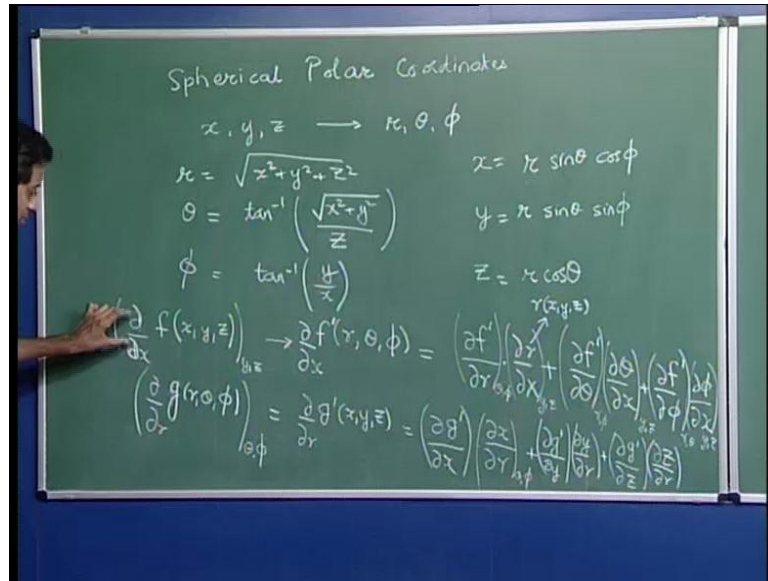 Spherical Polar Coordinates
x, y, z → r, θ, φ
r = √(x²+y²+z²)
x = r sinθ cosφ
θ = tan⁻¹(√(x²+y²)/z)
y = r sinθ sinφ
φ = tan⁻¹(y/x)
z = r cosθ
r(x,y,z)
(∂/∂x f(x,y,z))_y,z → ∂/∂x f'(r,θ,φ) = (∂f'/∂r)_θ,φ (∂r/∂x)_y,z + (∂f'/∂θ)_r,φ (∂θ/∂x)_y,z + (∂f'/∂φ)_r,θ (∂φ/∂x)_y,z
(∂/∂r g(r,θ,φ))_θ,φ = ∂/∂r g'(x,y,z) = (∂g'/∂x)(∂x/∂r)_θ,φ + (∂g'/∂y)(∂y/∂r) + (∂g'/∂z)(∂z/∂r)